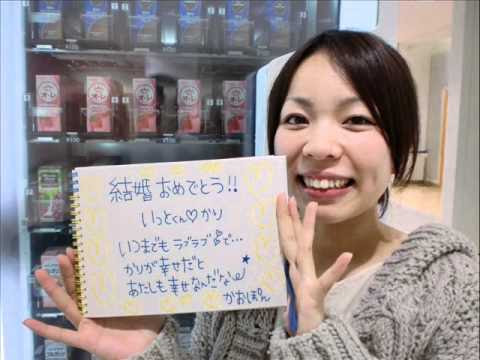 結婚おめでとう!!
いっとくん♡かり
いつまでもラブラブで…
かりが幸せだと
あたしも幸せなんだなぁ
かおぽん
オ・レ
オ・レ
オ・レ
オ・レ
¥100